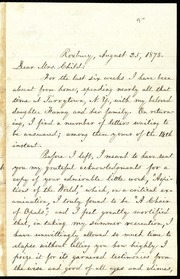 Roxbury, August 25, 1878.
Dear Mrs. Child:
For the last six weeks I have been
absent from home, spending nearly all that
time at Tarrytown, N.Y., with my beloved
daughter Fanny and her family. On return-
ing, I find a number of letters waiting to
be answered; among them yours of the 18th
instant.
Before I left, I meant to have sent
you my grateful acknowledgments for a
copy of your admirable little work, "Aspi-
rations of the World," which, on a critical ex-
amination, I truly found to be "A Chain
of Opals"; and I feel greatly mortified
that, in taking my summer vacation, I
have unwittingly allowed so much time to
elapse without telling you how highly I
prize it for its garnered testimonies from
the wise and good of all ages and climes,